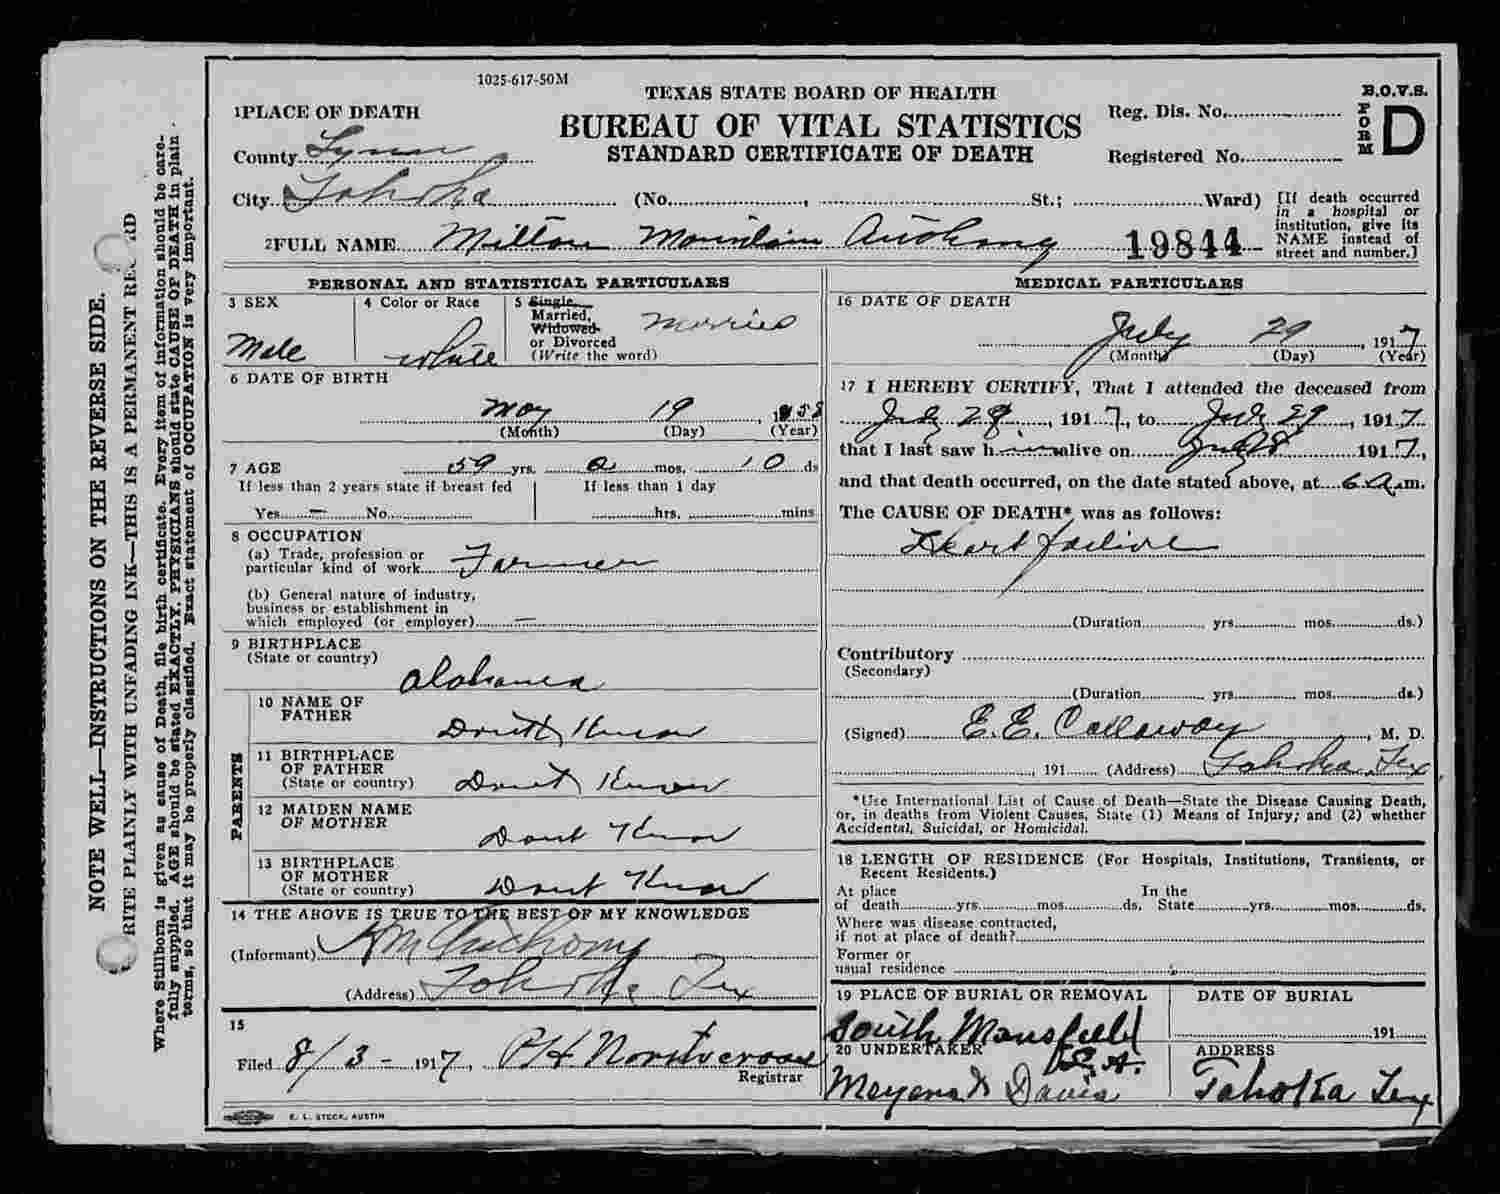 1025-617-50M
TEXAS STATE BOARD OF HEALTH
BUREAU OF VITAL STATISTICS
STANDARD CERTIFICATE OF DEATH
Reg. Dis. No.
Registered No.
B.O.V.S.
FORM D
1 PLACE OF DEATH
County Lynn
City Tahoka (No. , St.; Ward)
[If death occurred
in a hospital or
institution, give its
NAME instead of
street and number.]
2 FULL NAME Milton Mountain Anthony 19844
PERSONAL AND STATISTICAL PARTICULARS
3 SEX
Male
4 Color or Race
White
5 Single,
Married,
Widowed
or Divorced
(Write the word)
Married
6 DATE OF BIRTH
May 19, 1858
(Month) (Day) (Year)
7 AGE 59 yrs. 2 mos. 10 ds
If less than 2 years state if breast fed
Yes — No
If less than 1 day
hrs. mins
8 OCCUPATION
(a) Trade, profession or
particular kind of work Farmer
(b) General nature of industry,
business or establishment in
which employed (or employer) —
9 BIRTHPLACE
(State or country)
Alabama
PARENTS
10 NAME OF
FATHER
Dont Know
11 BIRTHPLACE
OF FATHER
(State or country)
Dont Know
12 MAIDEN NAME
OF MOTHER
Dont Know
13 BIRTHPLACE
OF MOTHER
(State or country)
Dont Know
14 THE ABOVE IS TRUE TO THE BEST OF MY KNOWLEDGE
(Informant) Anthony
(Address) Tahoka Tex
15
Filed 8/3 - 1917,
Registrar
E. L. STECK, AUSTIN
MEDICAL PARTICULARS
16 DATE OF DEATH
July 29, 1917
(Month) (Day) (Year)
17 I HEREBY CERTIFY, That I attended the deceased from
July 29, 1917, to July 29, 1917
that I last saw him alive on 1917,
and that death occurred, on the date stated above, at 6 A.m.
The CAUSE OF DEATH* was as follows:
Heart failure
(Duration yrs. mos. ds.)
Contributory
(Secondary)
(Duration yrs. mos. ds.)
(Signed) E.E. Callaway, M. D.
, 191 (Address) Tahoka, Tex
*Use International List of Cause of Death—State the Disease Causing Death,
or, in deaths from Violent Causes, State (1) Means of Injury; and (2) whether
Accidental, Suicidal, or Homicidal.
18 LENGTH OF RESIDENCE (For Hospitals, Institutions, Transients, or
Recent Residents.)
At place
of death yrs. mos. ds.
In the
State yrs. mos. ds.
Where was disease contracted,
if not at place of death?
Former or
usual residence
19 PLACE OF BURIAL OR REMOVAL
South Mansfield
La.
DATE OF BURIAL
191
20 UNDERTAKER
Davis
ADDRESS
Tahoka Tex
NOTE WELL—INSTRUCTIONS ON THE REVERSE SIDE.
RITE PLAINLY WITH UNFADING INK—THIS IS A PERMANENT RECORD
Where Stillborn is given as cause of Death, file birth certificate. Every item of information should be care-
fully supplied. AGE should be stated EXACTLY. PHYSICIANS should state CAUSE OF DEATH in plain
terms, so that it may be properly classified. Exact statement of OCCUPATION is very important.